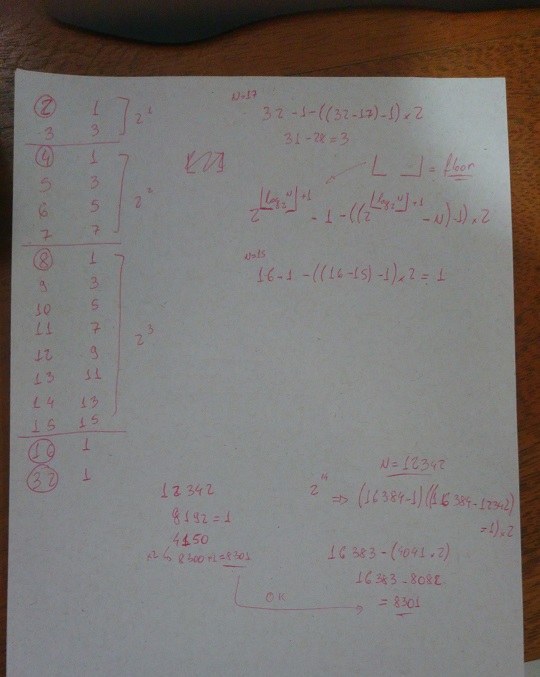 2 1
3 3
2¹
4 1
5 3
6 5
7 7
2²
8 1
9 3
10 5
11 7
12 9
13 11
14 13
15 15
2³
16 1
32 1
N=17
32-1-((32-17)-1)×2
31-28=3
⌊ ⌋ = floor
2^(⌊log₂N⌋+1) - 1 - ((2^(⌊log₂N⌋+1) - N)-1)×2
N=15
16-1-((16-15)-1)×2=1
12342
8192=1
4150
×2↳ 8300+1=8301
OK
N=12342
2¹⁴ ⇒ (16384-1)((16384-12342)
=1)×2
16383-(4041×2)
16383-8082
=8301